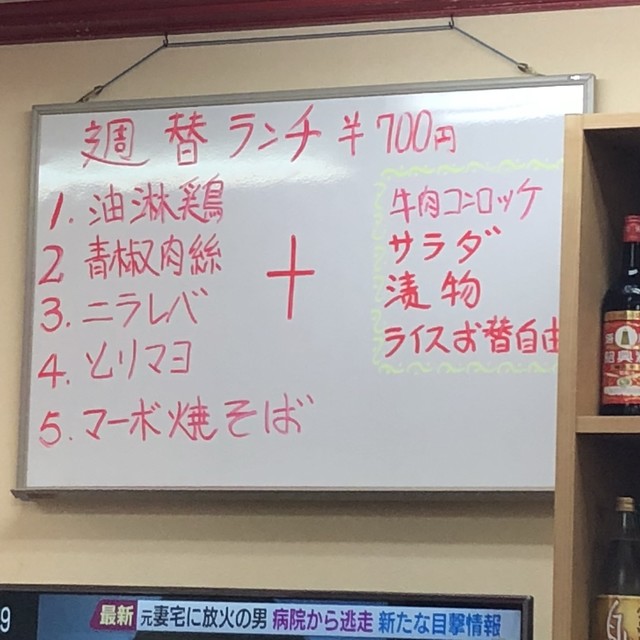 週替ランチ ¥700円
1. 油淋鶏
2 青椒肉絲
3. ニラレバ
4. ソリマヨ
5. マーボ焼そば
+
牛肉コンロッケ
サラダ
漬物
ライスお替自由
9
最新 元妻宅に放火の男 病院から逃走 新たな目撃情報